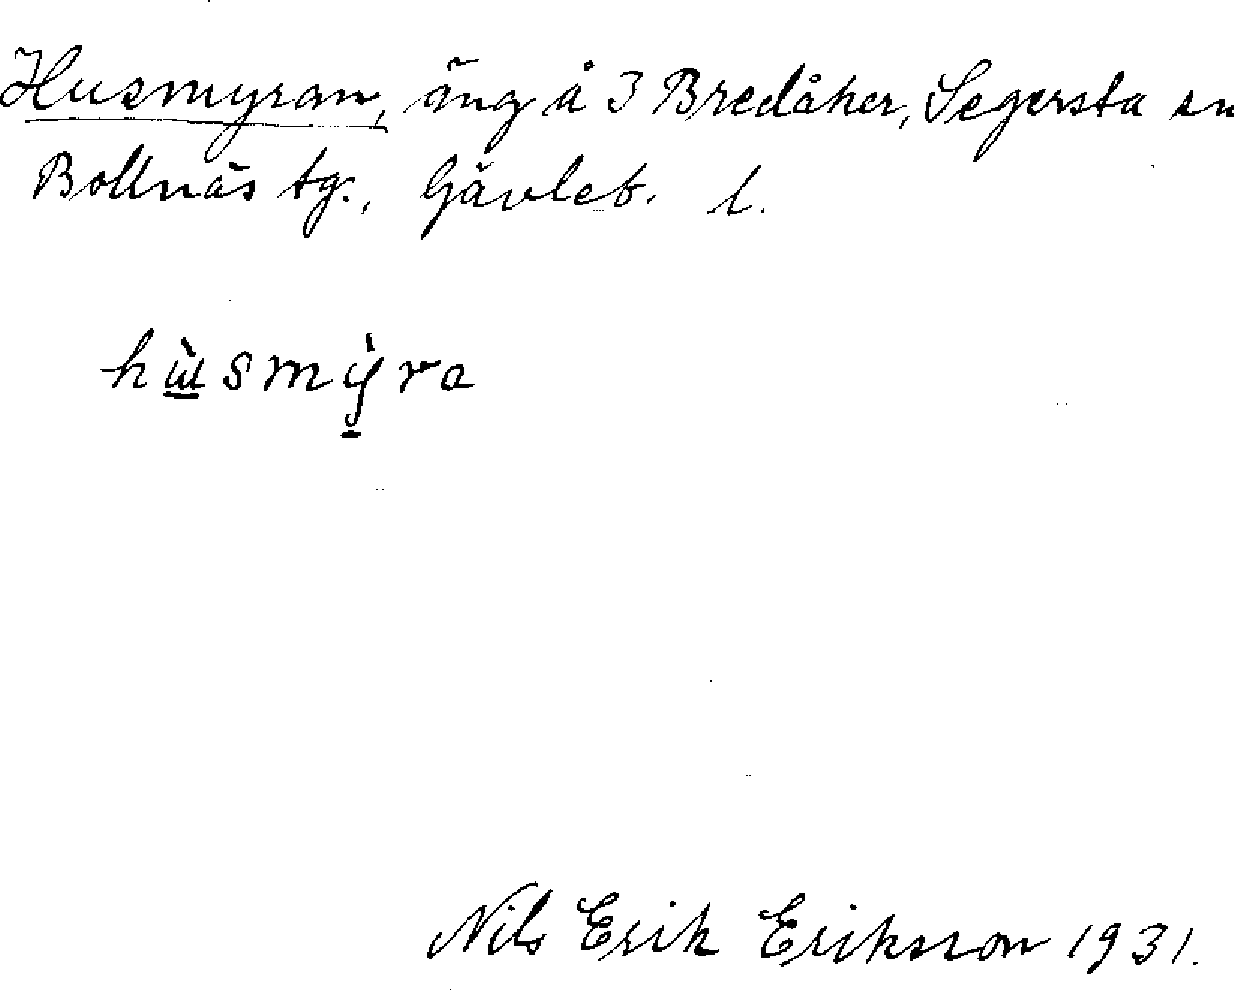 Husmyran, äng å 3 Bredåker, Segersta sn
Bollnäs tg., Gävleb. l.
hɯ̱̀smỳ̱ra
Nils Erik Eriksson 1931.